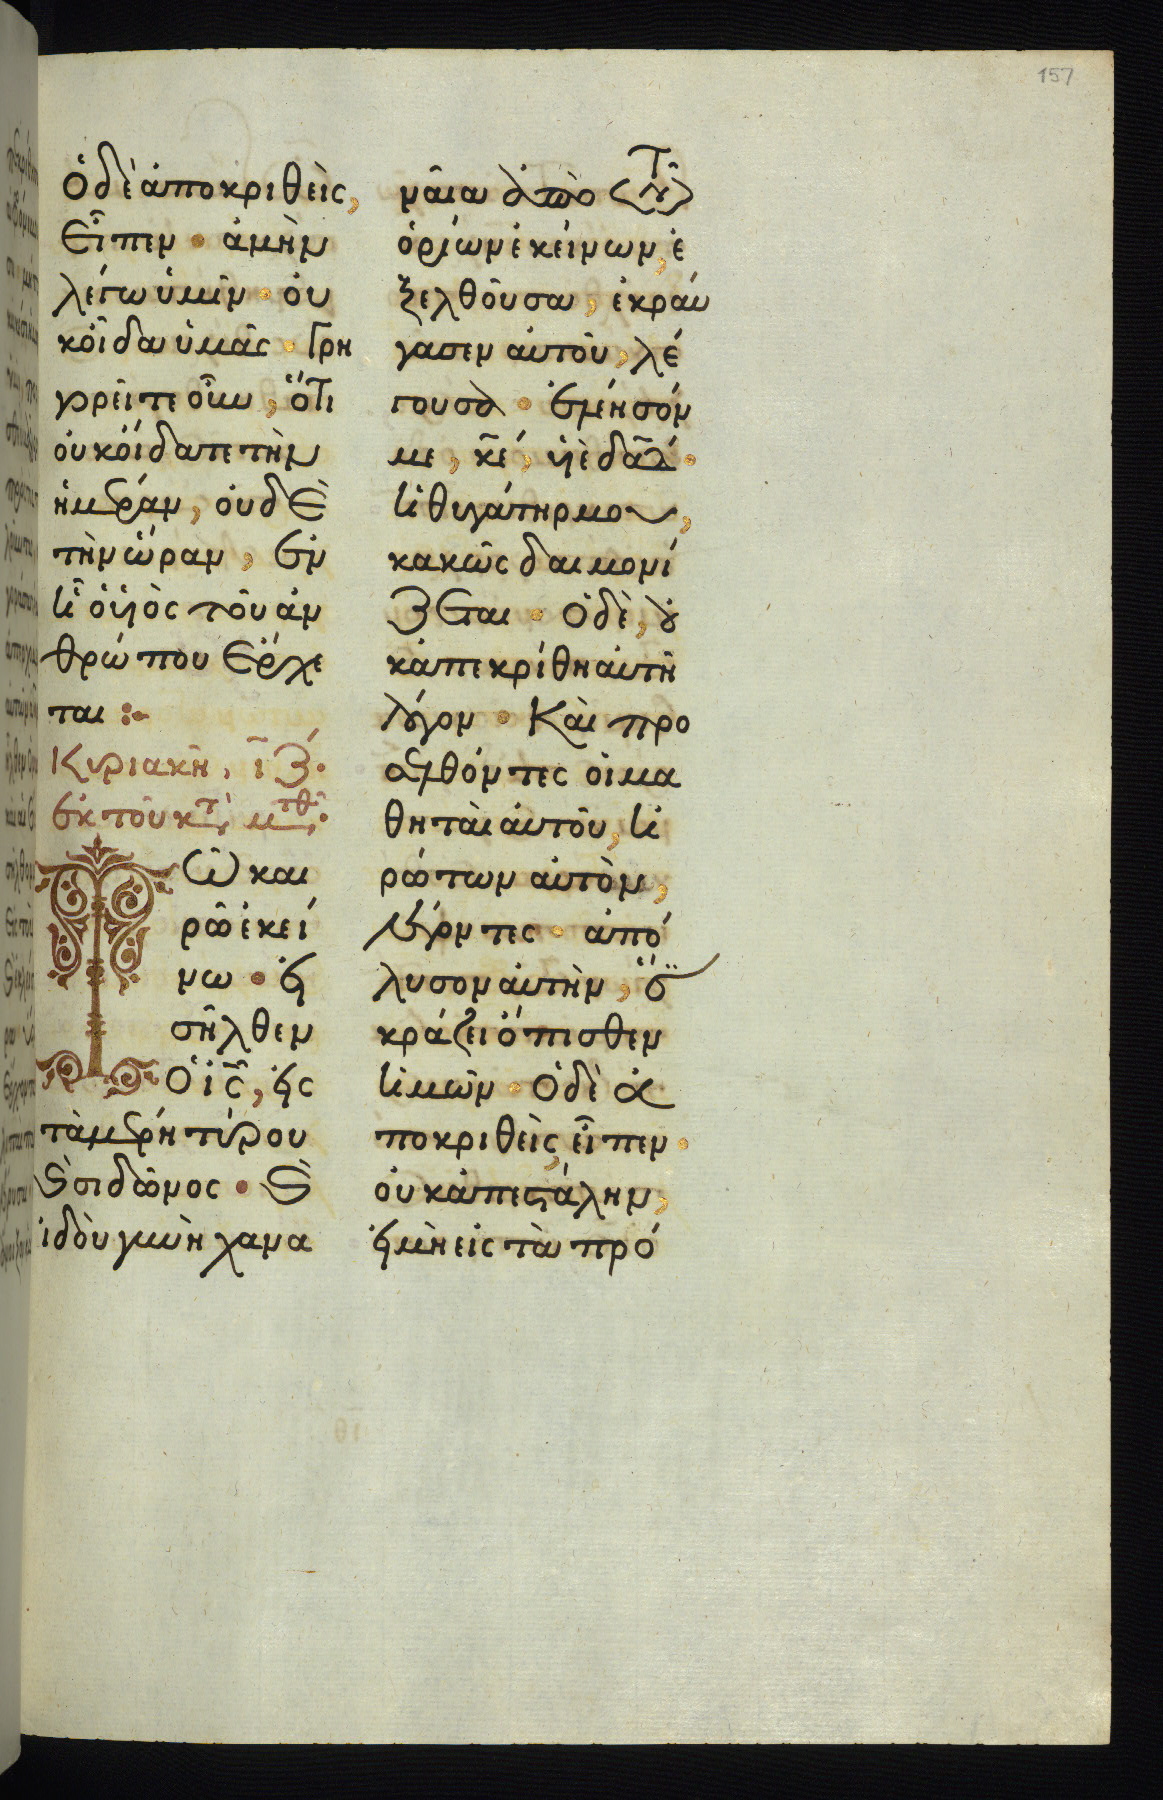 157
Ὁ δὲ ἀποκριθεὶς,
εἶπεν · ἀμὴν
λέγω ὑμῖν · οὐ
κ οἶδα ὑμᾶς · Γρη
γορεῖτε οὖν, ὅτι
οὐκ οἴδατε τὴν
ἡμέραν, οὐδὲ
τὴν ὥραν, ἐν
ᾗ ὁ υἱὸς τοῦ ἀν
θρώπου ἔρχε
ται :-
Κυριακῆ, ιζ΄.
ἐκ τοῦ κτ̀ μτθ·
Τῶ και
ρῶ ἐκεί
νω · ἐξ
ῆλθεν
ὁ ις̅, εἰς
τὰ μέρη τύρου
καὶ σιδῶνος · καὶ
ἰδοὺ γυνὴ χανα
ναία ἀπὸ τῶν
ὁρίων ἐκείνων, ἐ
ξελθοῦσα, ἐκραύ
γασεν αὐτοῦ, λέ
γουσα · ἐλέησόν
με, κε̅, υἱὲ δαδ̅·
ἡ θυγάτηρ μου,
κακῶς δαιμονί
ζεται · Ὁ δὲ, οὐ
κ ἀπεκρίθη αὐτῆ
λόγον · Καὶ προ
σελθόντες οἱ μα
θηταὶ αὐτοῦ, ἠ
ρώτων αὐτὸν,
λέγοντες · ἀπό
λυσον αὐτὴν, ὅτι
κράζει ὄπισθεν
ἡμῶν · Ὁ δὲ ἀ
ποκριθεὶς, εἶπεν ·
οὐκ ἀπεστάλην,
εἰ μὴ εἰς τὰ πρό